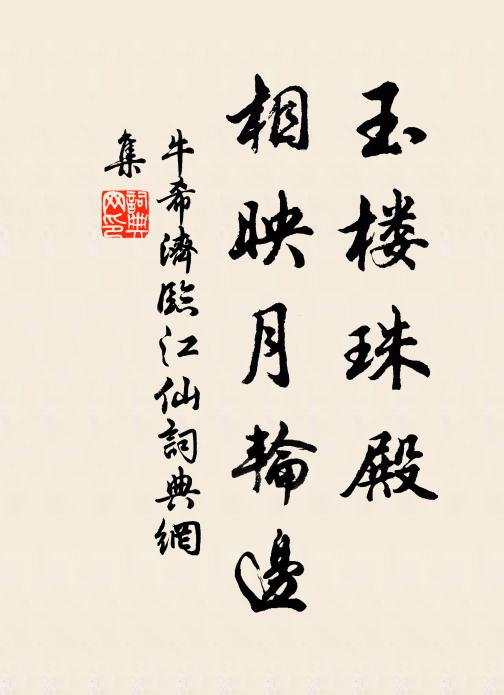 玉楼珠殿
相映月輪邊
牛希濟臨江仙詞典網
集
詞典網印